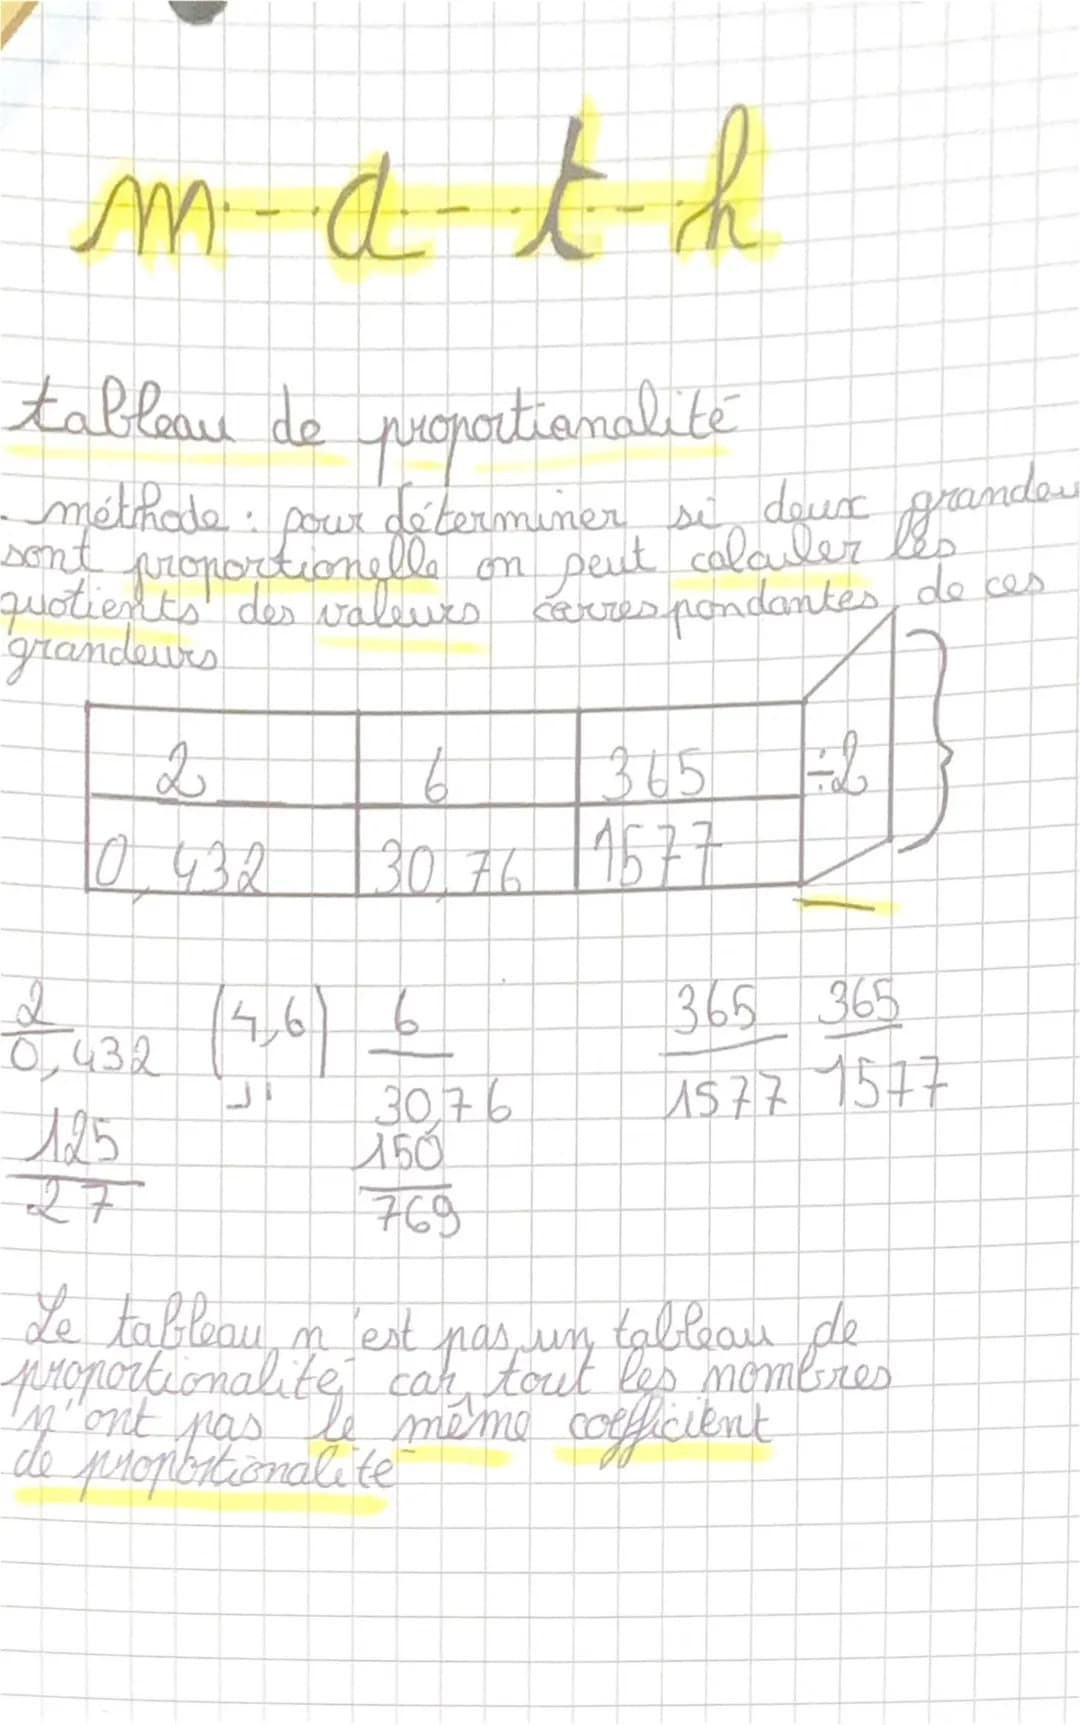 m-a-t-h
tableau de proportionalité
- méthode : pour déterminer si deux grandeu
sont proportionelle on peut calculer les
quotients des valeurs correspondantes de ces
grandeurs
2 6 365 ÷2
0,432 30,76 1577
2 (4,6) 6 365 365
0,432 30,76 1577 1577
125 150
27 769
Le tableau n'est pas un tableau de
proportionalité car tout les nombres
n'ont pas le même coefficient
de proportionalité